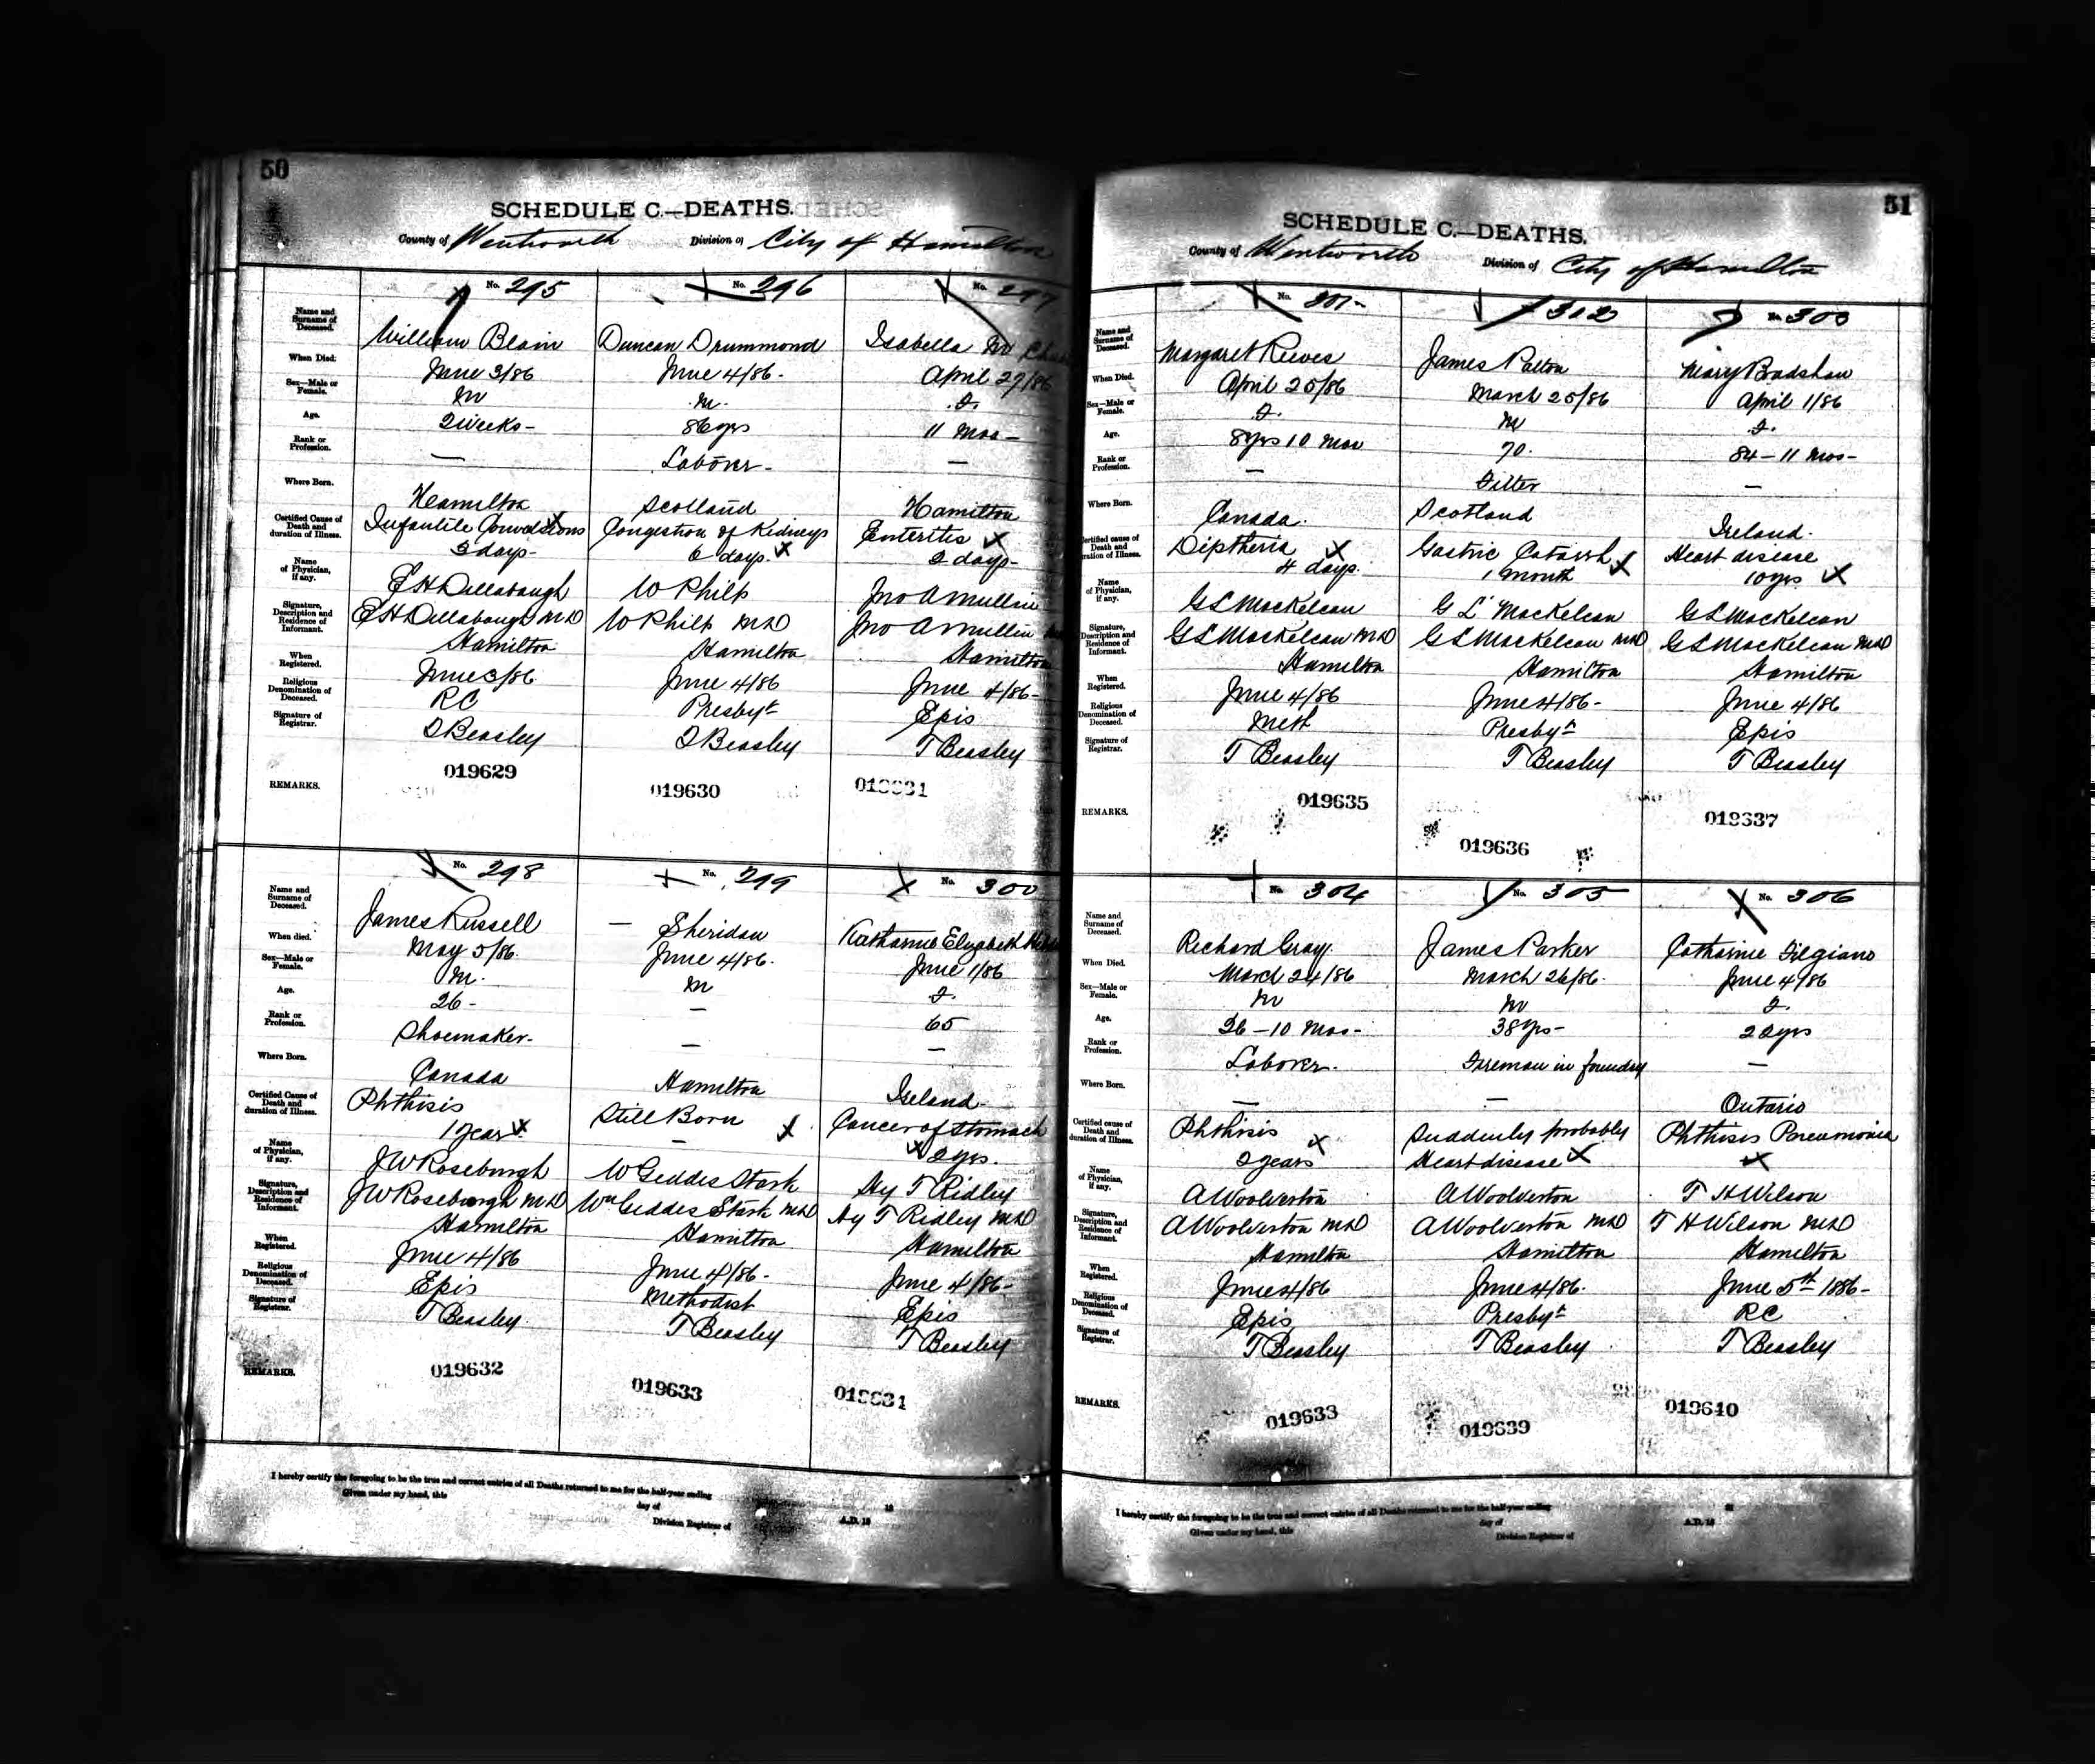 50
SCHEDULE C.—DEATHS.
County of Wentworth Division of City of Hamilton
No. 295 No. 296 No. 297
Name and Surname of Deceased. William Blain Duncan Drummond Isabella
When Died. June 3/86 June 4/86. April 29/86
Sex—Male or Female. M M. F.
Age. 2 weeks- 86 yrs 11 Mos-
Rank or Profession. — Laborer- —
Where Born. Hamilton Scotland Hamilton
Certified Cause of Death and duration of Illness. Infantile Convulsions 3 days- Congestion of Kidneys 6 days. Enteritis 2 days-
Name of Physician, if any. E H Dillabaugh W Philp Jno A Mullin
Signature, Description and Residence of Informant. E H Dillabaugh MD Hamilton W Philp MD Hamilton Jno A Mullin Hamilton
When Registered. June 3/86 June 4/86 June 4/86-
Religious Denomination of Deceased. RC Presbyt Epis
Signature of Registrar. T Beasley T Beasley T Beasley
REMARKS. 019629 019630 019631
No. 298 No. 299 No. 300
Name and Surname of Deceased. James Russell — Sheridan Katharine Elizabeth
When died. May 5/86. June 4/86. June 1/86
Sex—Male or Female. M. M F.
Age. 26- — 65
Rank or Profession. Shoemaker. — —
Where Born. Canada Hamilton Ireland-
Certified Cause of Death and duration of Illness. Phthisis 1 year Still Born — Cancer of Stomach 2 yrs.
Name of Physician, if any. J W Rosebrugh W Geddes Stark Hy T Ridley
Signature, Description and Residence of Informant. J W Rosebrugh MD Hamilton Wm Geddes Stark MD Hamilton Hy T Ridley MD Hamilton
When Registered. June 4/86 June 4/86- June 4/86-
Religious Denomination of Deceased. Epis Methodist Epis
Signature of Registrar. T Beasley. T Beasley T Beasley
REMARKS. 019632 019633 019634
I hereby certify the foregoing to be the true and correct entries of all Deaths returned to me for the half-year ending 18
Given under my hand, this day of A.D. 18
Division Registrar of
51
SCHEDULE C.—DEATHS.
County of Wentworth Division of City of Hamilton
No. 301- 302 No. 303
Name and Surname of Deceased. Margaret Reeves James Patton Mary Bradshaw
When Died. April 20/86 March 25/86 April 1/86
Sex—Male or Female. F. M F.
Age. 8 yrs 10 Mos 70. 84-11 Mos-
Rank or Profession. — Fitter —
Where Born. Canada. Scotland Ireland.
Certified cause of Death and duration of Illness. Diptheria 4 days. Gastric Catarrh 1 Month Heart disease 10 yrs
Name of Physician, if any. G L Mackelcan G L Mackelcan G L Mackelcan
Signature, Description and Residence of Informant. G L Mackelcan MD Hamilton G L Mackelcan MD Hamilton G L Mackelcan MD Hamilton
When Registered. June 4/86 June 4/86- June 4/86
Religious Denomination of Deceased. Meth Presbyt Epis
Signature of Registrar. T Beasley T Beasley T Beasley
REMARKS. 019635 019636 019637
No. 304 No. 305 No. 306
Name and Surname of Deceased. Richard Gray. James Parker Catharine Filgiano
When Died. March 24/86 March 26/86. June 4/86
Sex—Male or Female. M M F.
Age. 26-10 Mos- 38 yrs- 22 yrs
Rank or Profession. Laborer. Fireman in foundry —
Where Born. — — Ontario
Certified cause of Death and duration of Illness. Phthisis 2 years Suddenly probably Heart disease Phthisis Pneumonia
Name of Physician, if any. A Woolverton A Woolverton T H Wilson
Signature, Description and Residence of Informant. A Woolverton MD Hamilton A Woolverton MD Hamilton T H Wilson MD Hamilton
When Registered. June 4/86 June 4/86. June 5th 1886-
Religious Denomination of Deceased. Epis Presbyt RC
Signature of Registrar. T Beasley T Beasley T Beasley
REMARKS. 019638 019639 019640
I hereby certify the foregoing to be the true and correct entries of all Deaths returned to me for the half-year ending 18
Given under my hand, this day of A.D. 18
Division Registrar of